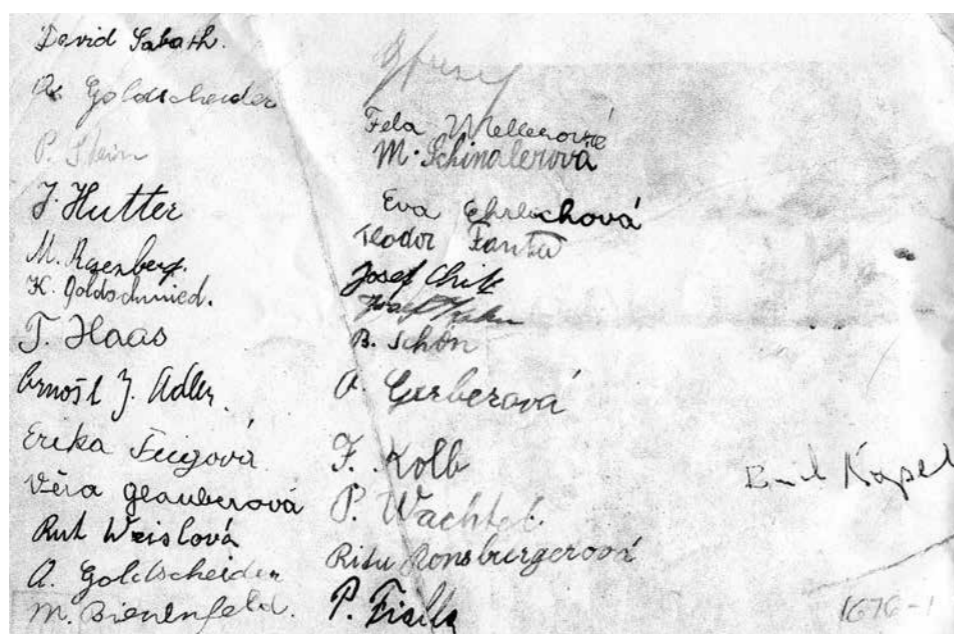 David Sabath.
Goldscheider
P. Stein
J. Hutter
M. Rosenberg.
K. Goldschmied.
T. Haas
Arnošt J. Adler.
Erika Feigová
Věra Glauberová
Rut Weislová
A. Goldscheider
M. Bienenfeld.
Fela
M. Schindlerová
Eva Ehrlichová
Teodor Fanta
Josef
B. Schön
Gerberová
F. Kolb
P. Wachtel.
Ronsburgerová
P.
Emil
1676-1